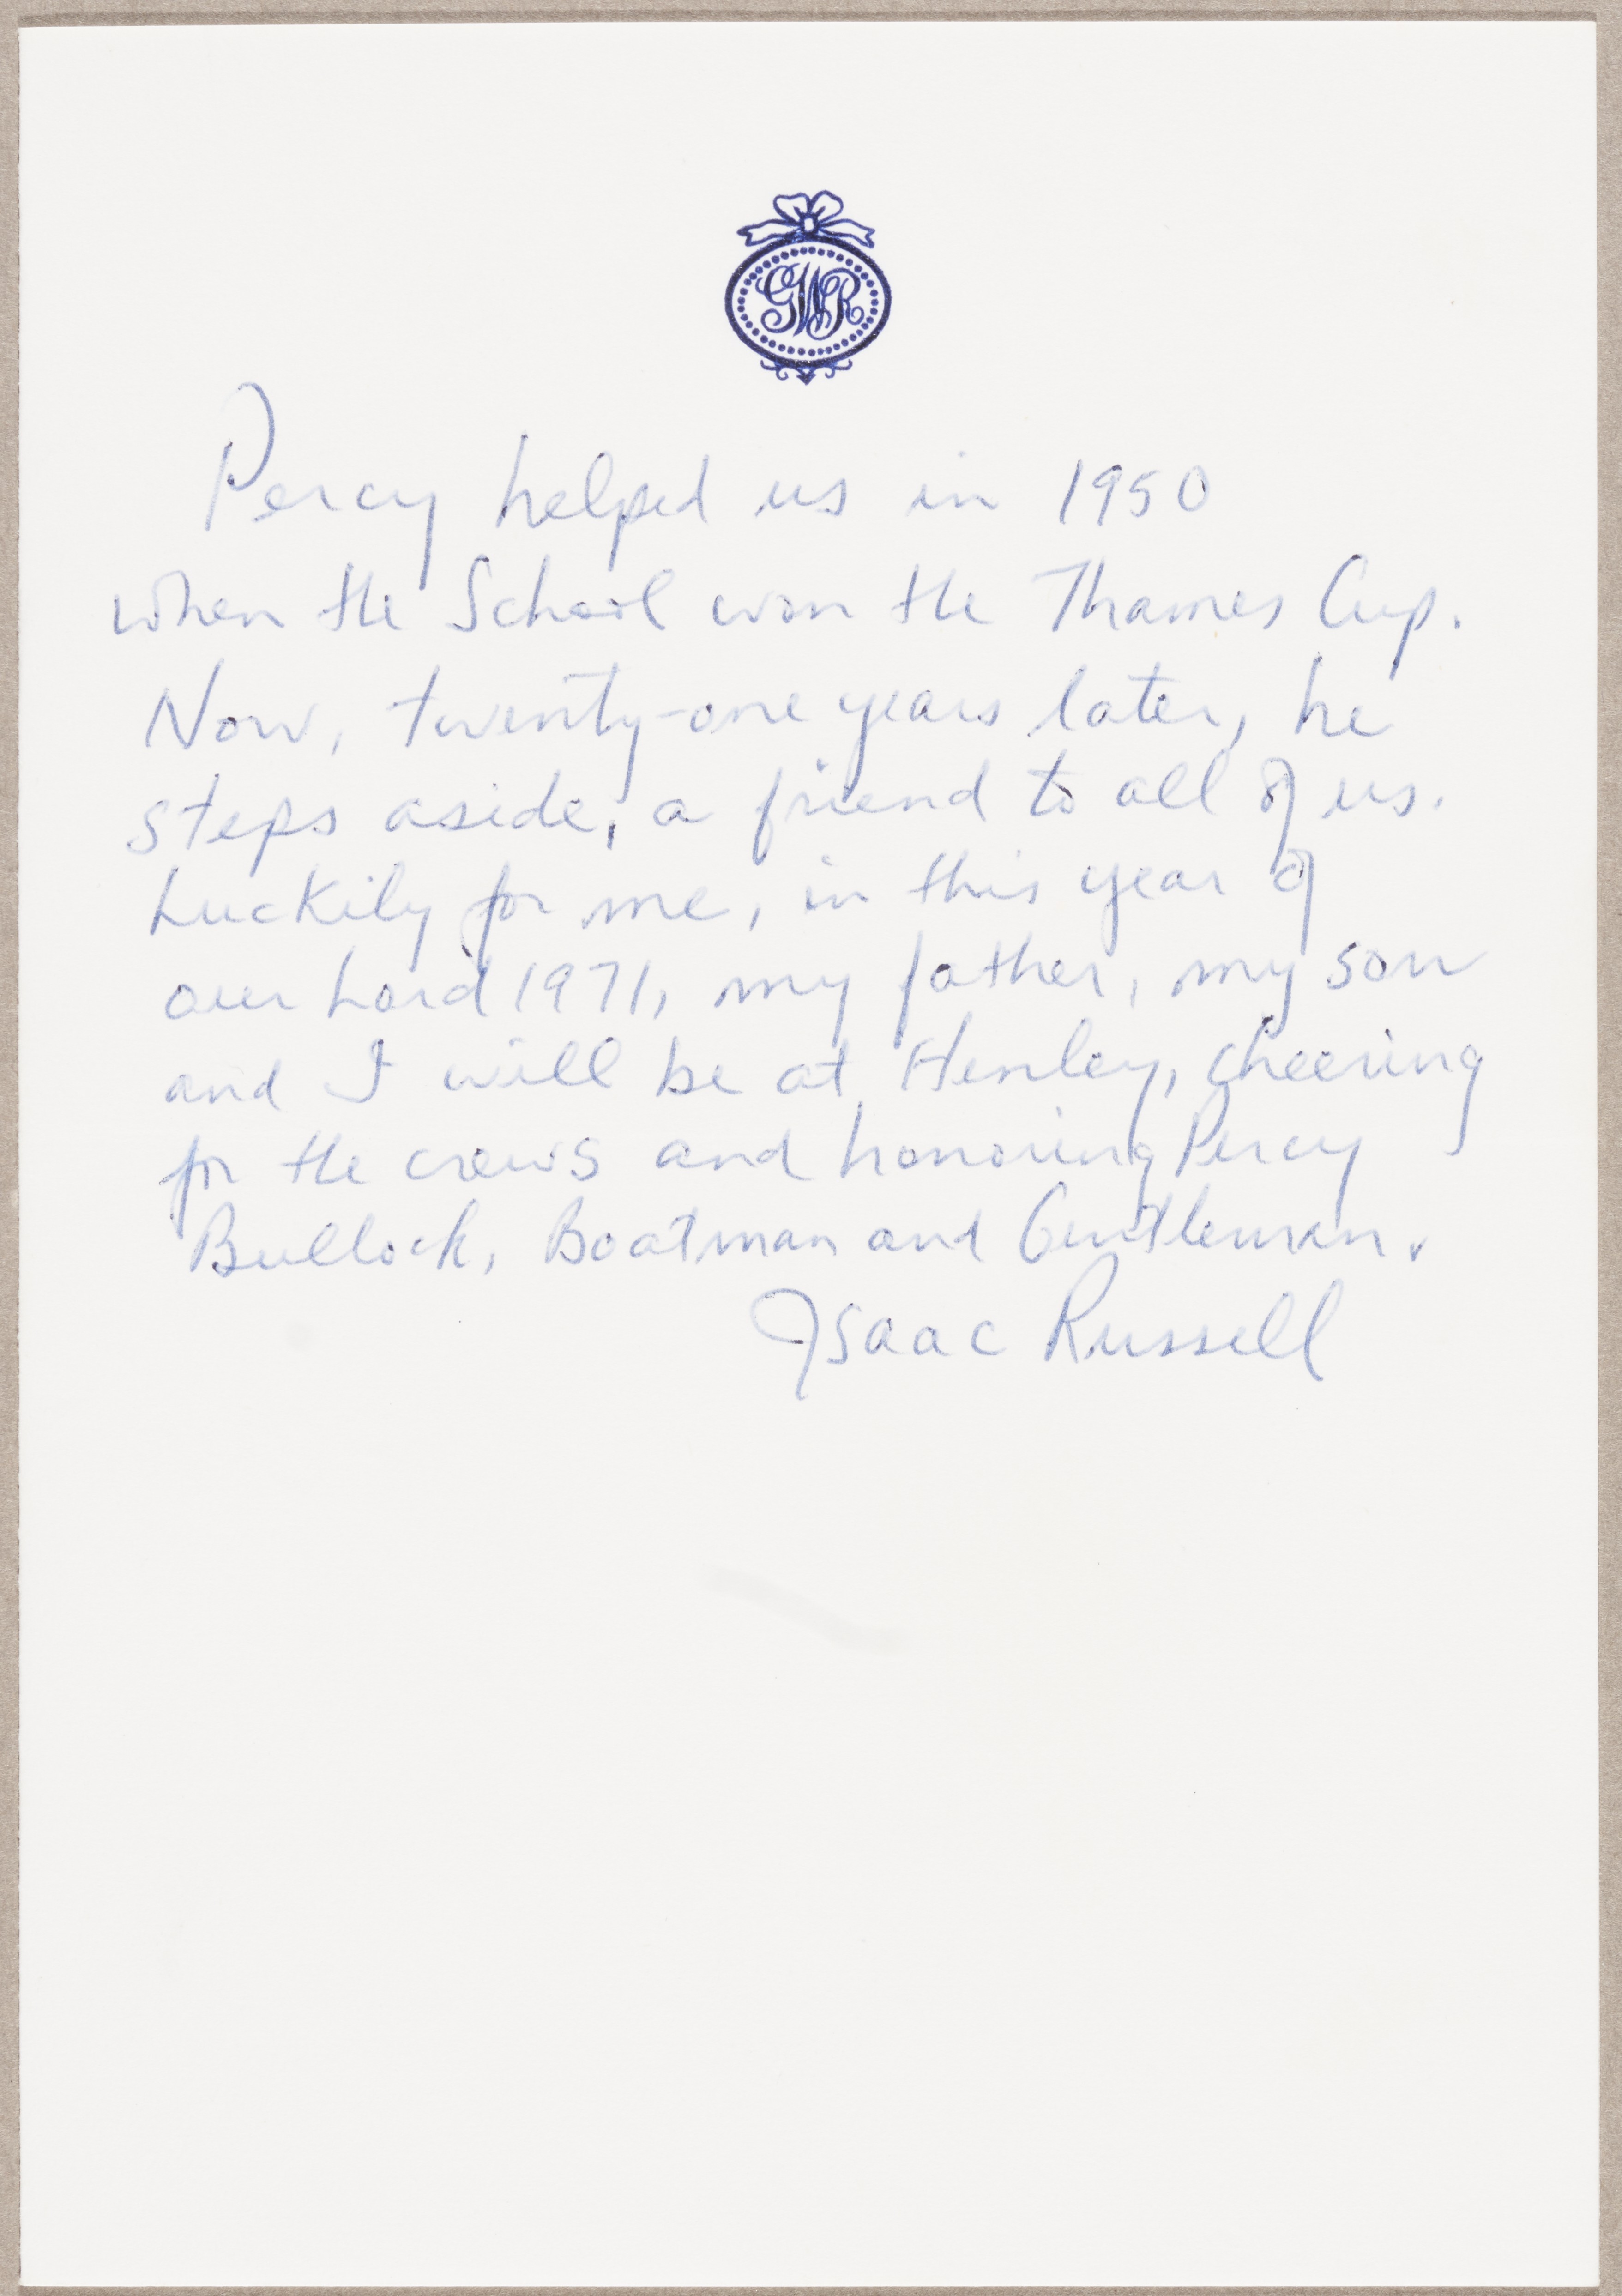 GWR
Percy helped us in 1950
when the School won the Thames Cup.
Now, twenty-one years later, he
steps aside, a friend to all of us.
Luckily for me, in this year of
our Lord 1971, my father, my son
and I will be at Henley, cheering
for the crews and honoring Percy
Bullock, Boatman and Gentleman.
Isaac Russell